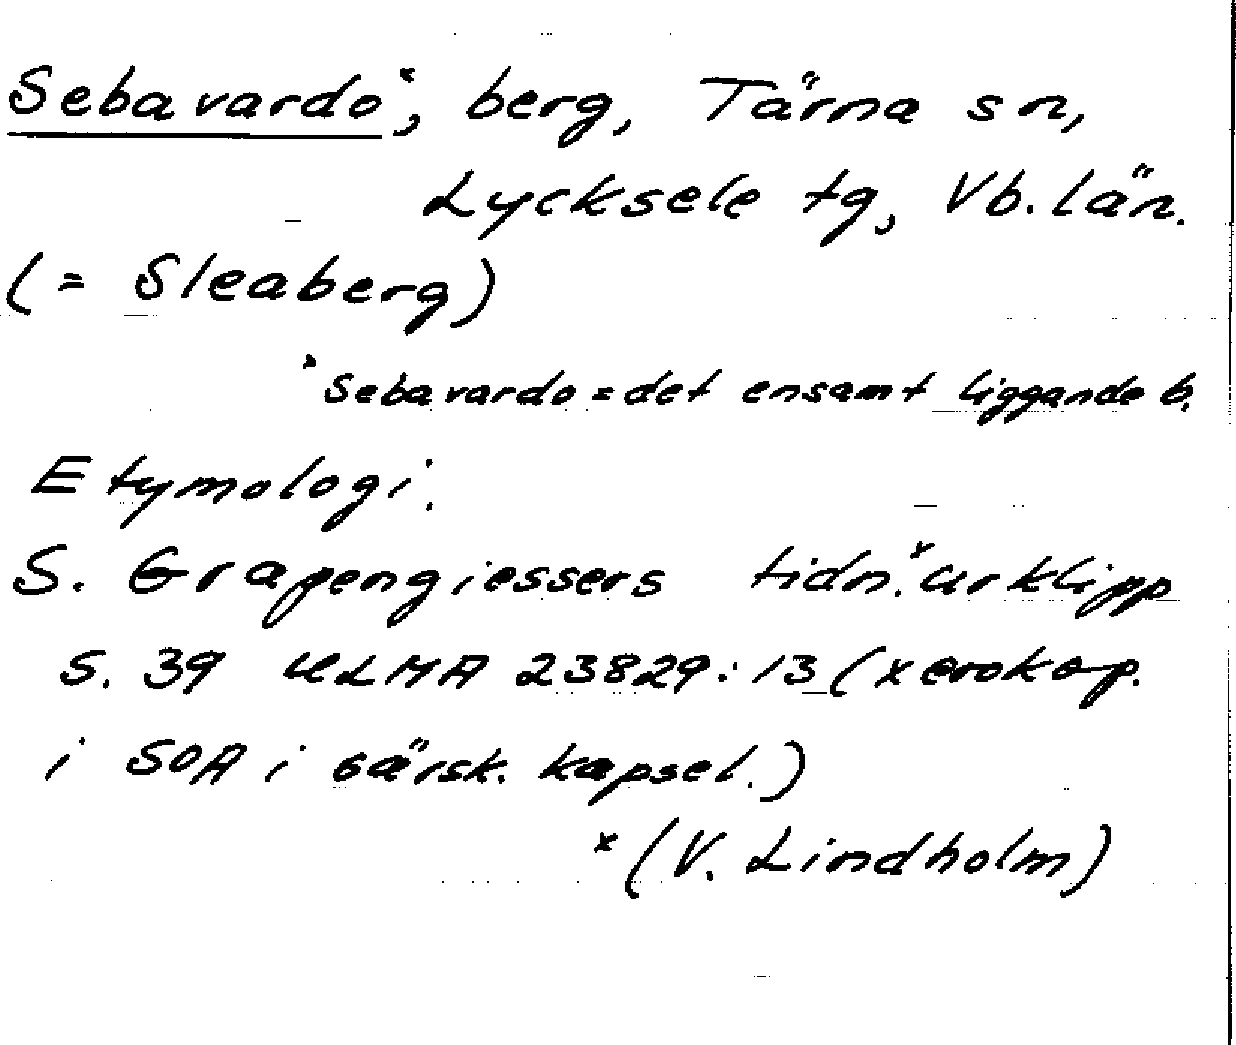 Sebavardoˣ, berg, Tärna sn,
Lycksele tg, Vb. län.
(= Sleaberg)
ˣ Sebavardo = det ensamt liggande b.
Etymologi.
S. Grapengiessers tidn.ˣurklipp
s. 39 ULMA 23829:13 (xerokop.
i SOA i särsk. kapsel.)
ˣ (V. Lindholm)